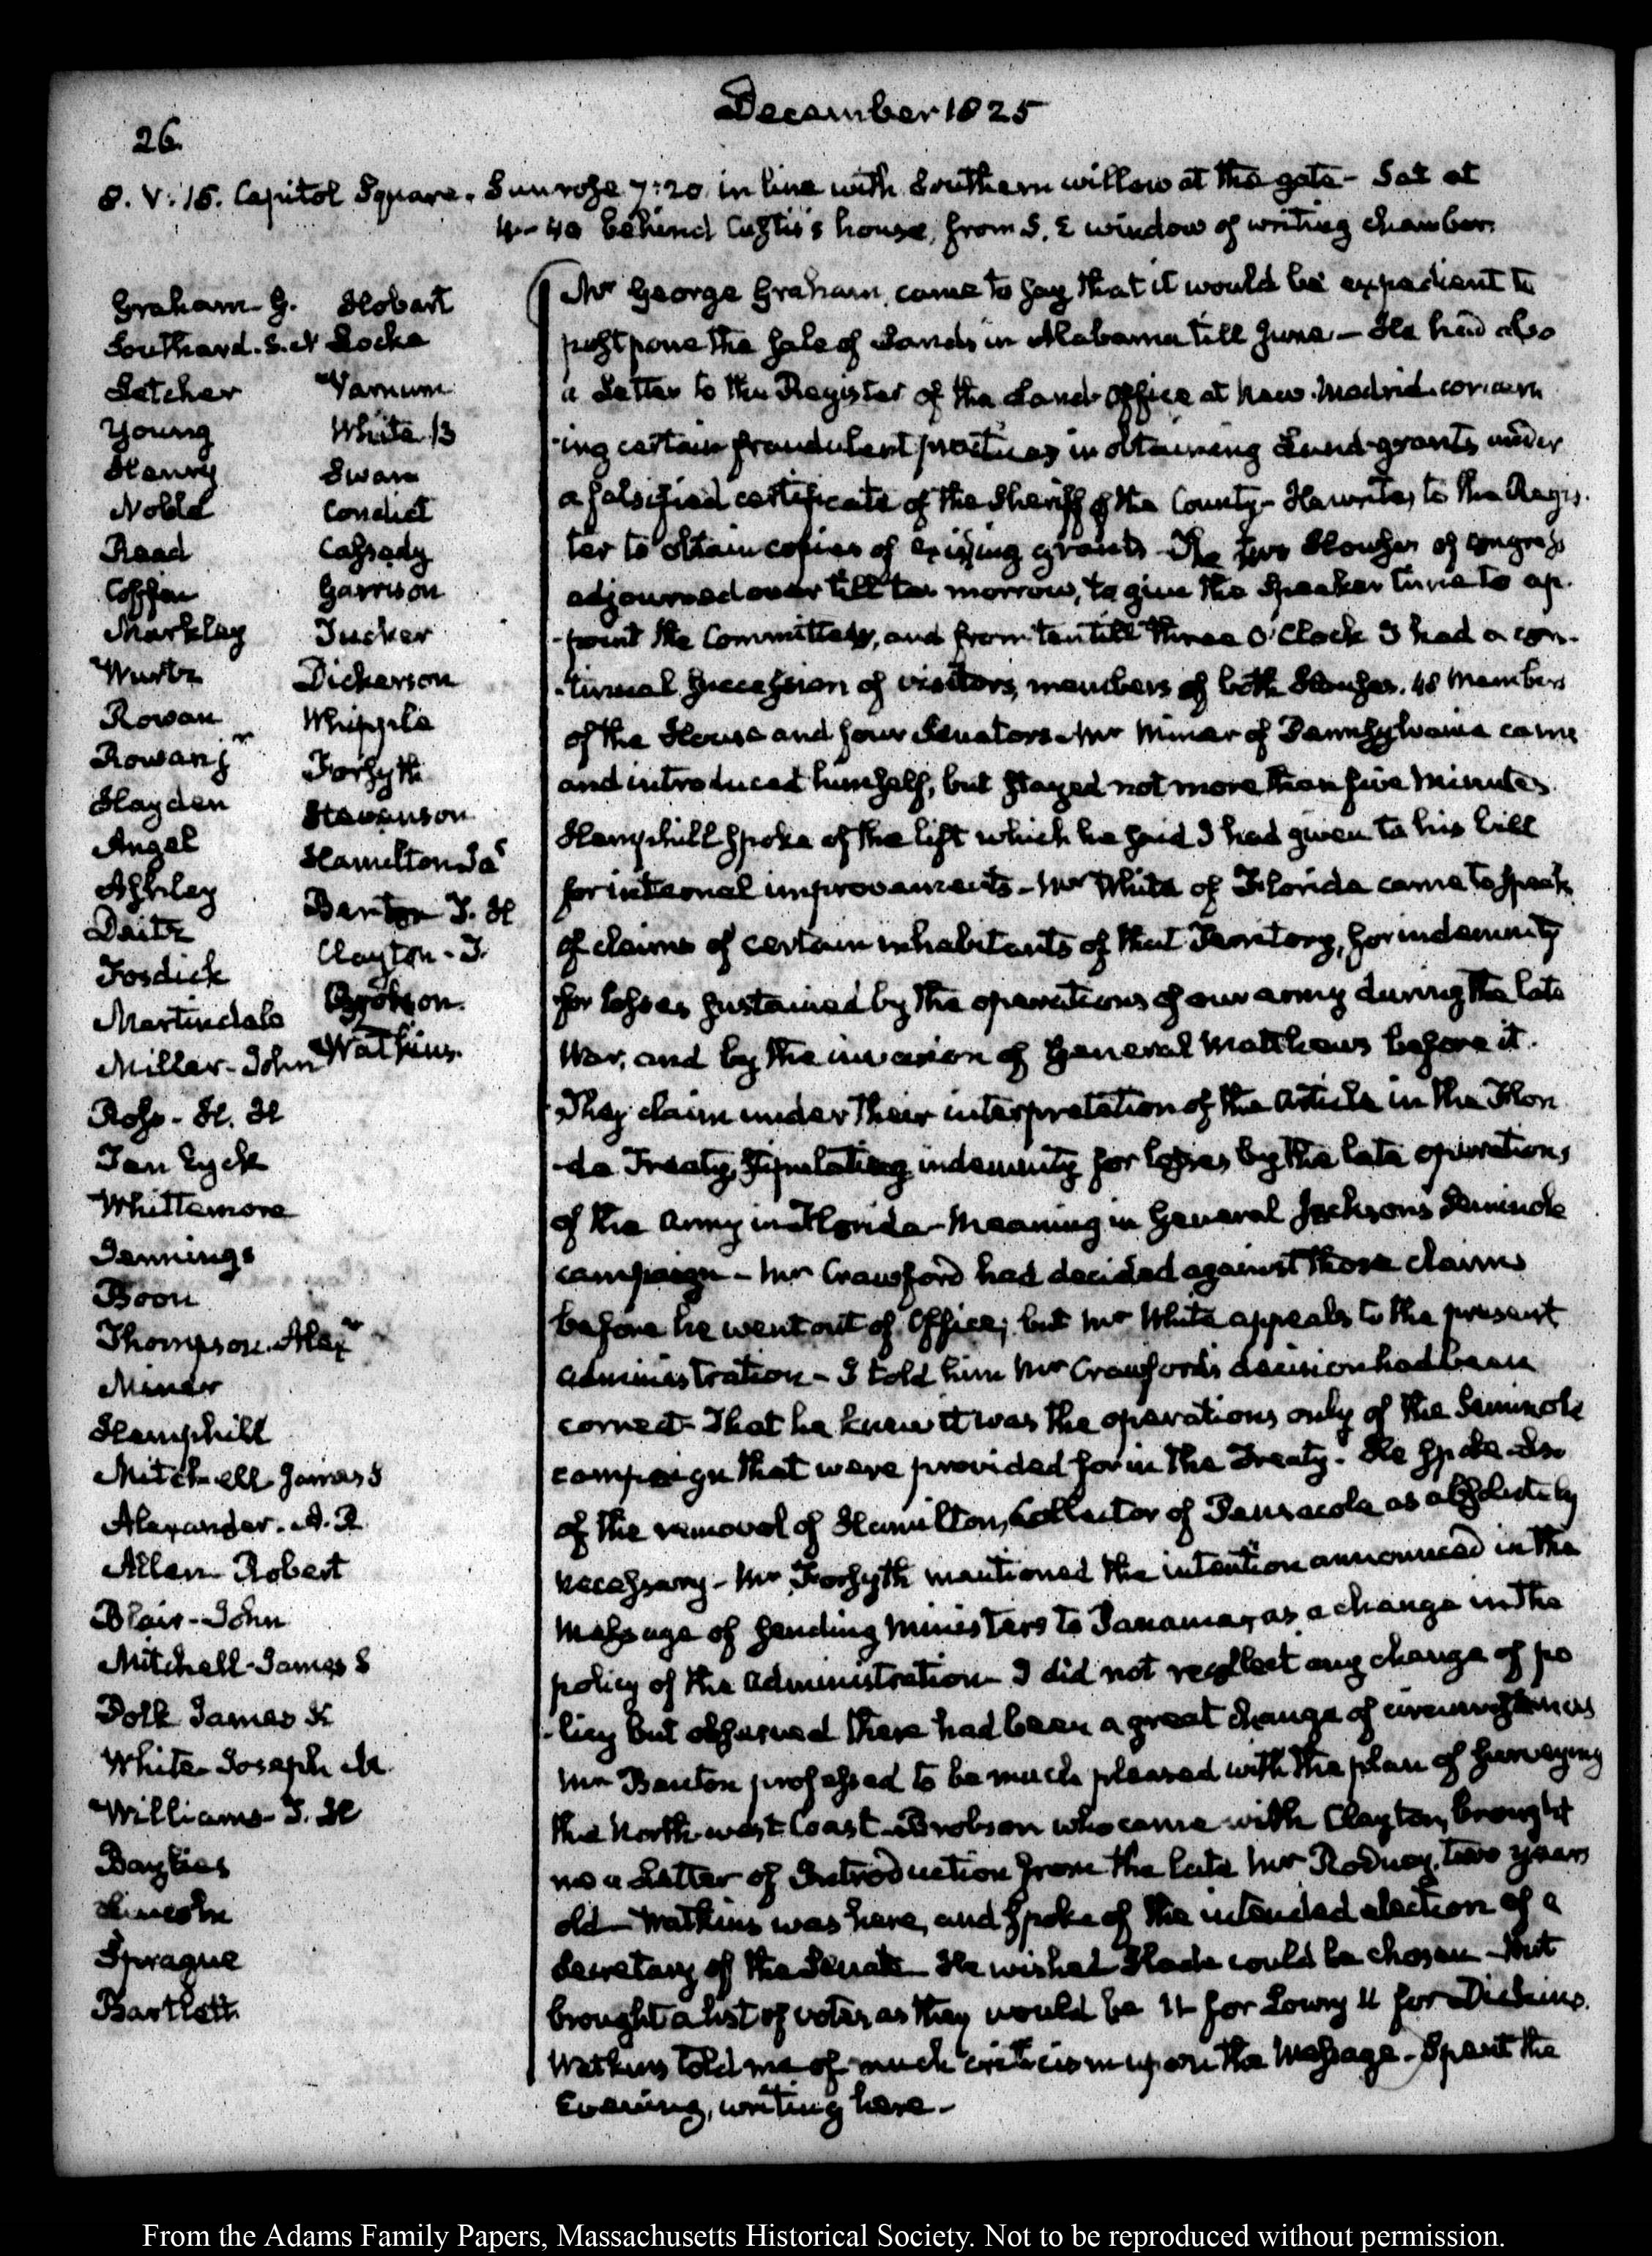 December 1825
26.
8. V: 15. Capitol Square. Sun rose 7:20. in line with Southern willow at the gate - Set at
4-40 behind Custis's house, from S. E window of writing chamber.
Graham- G.
Southard. S. N
Letcher
Young
Henry
Noble
Read
Coffin
Markley
Wurtz
Rowan
Rowan jr
Hayden
Angel
Ashley
Deitz
Fosdick
Martindale
Miller- John
Ross - H. H
Ten Eyck
Whittemore
Jennings
Boon
Thompson. Alexr
Miner
Hemphill
Mitchell James S
Alexander. A. R
Allen- Robert
Blair- John
Mitchell- James S
Polk James K
White- Joseph M.
Williams- T. H
Baylies
Lincoln
Sprague
Bartlett
Hobart
Locke
Varnum
White B
Swan
Condict
Cassedy
Garrison
Tucker
Dickerson
Whipple
Forsyth
Stevenson
Hamilton Jas
Benton T. H
Clayton - T.
Brobson.
Watkins.
Mr George Graham, came to say that it would be expedient to
postpone the sale of Lands in Alabama till June - He had also
a Letter to the Register of the Land Office at New-Madrid concern
-ing certain fraudulent practices in obtaining Land-grants under
a falsified certificate of the Sheriff of the County- He writes to the Regis-
ter to obtain copies of existing grants- The two Houses of Congress
adjourned over till to morrow, to give the Speaker time to ap-
-point the Committees, and from ten till three O'Clock I had a con-
-tinual succession of visitors, members of both Houses. 48 Members
of the House and four Senators- Mr Miner of Pennsylvania came
and introduced himself, but stayed not more than five Minutes
Hemphill spoke of the lift which he said I had given to his bill
for internal improvements- Mr White of Florida came to speak
of claims of certain inhabitants of that Territory, for indemnity
for losses sustained by the operations of our army during the late
War, and by the invasion of General Matthews before it.
They claim under their interpretation of the Article in the Flori
-da Treaty, stipulating indemnity for losses by the late operations
of the Army in Florida- Meaning in General Jackson's Seminole
campaign - Mr Crawford had decided against those claims
before he went out of Office; but Mr White appeals to the present
administration - I told him Mr Crawford's decision had been
correct- That he knew it was the operations only of the Seminole
campaign that were provided for in the Treaty. He spoke also
of the removal of Hamilton, Collector of Pensacola as absolutely
necessary - Mr Forsyth mentioned the intention announced in the
Message of sending Ministers to Panama, as a change in the
policy of the Administration- I did not recollect any change of po
-licy but observed there had been a great change of circumstances
Mr Benton professed to be much pleased with the plan of surveying
the North-west Coast- Brobson who came with Clayton, brought
me a Letter of Introduction from the late Mr Rodney, two years
old- Watkins was here, and spoke of the intended election of a
Secretary of the Senate- He wished Slade could be chosen- but
brought a list of votes as they would be 11 for Lowry 11 for Dickins.
Watkins told me of much criticism upon the Message- Spent the
Evening, writing here-
From the Adams Family Papers, Massachusetts Historical Society. Not to be reproduced without permission.